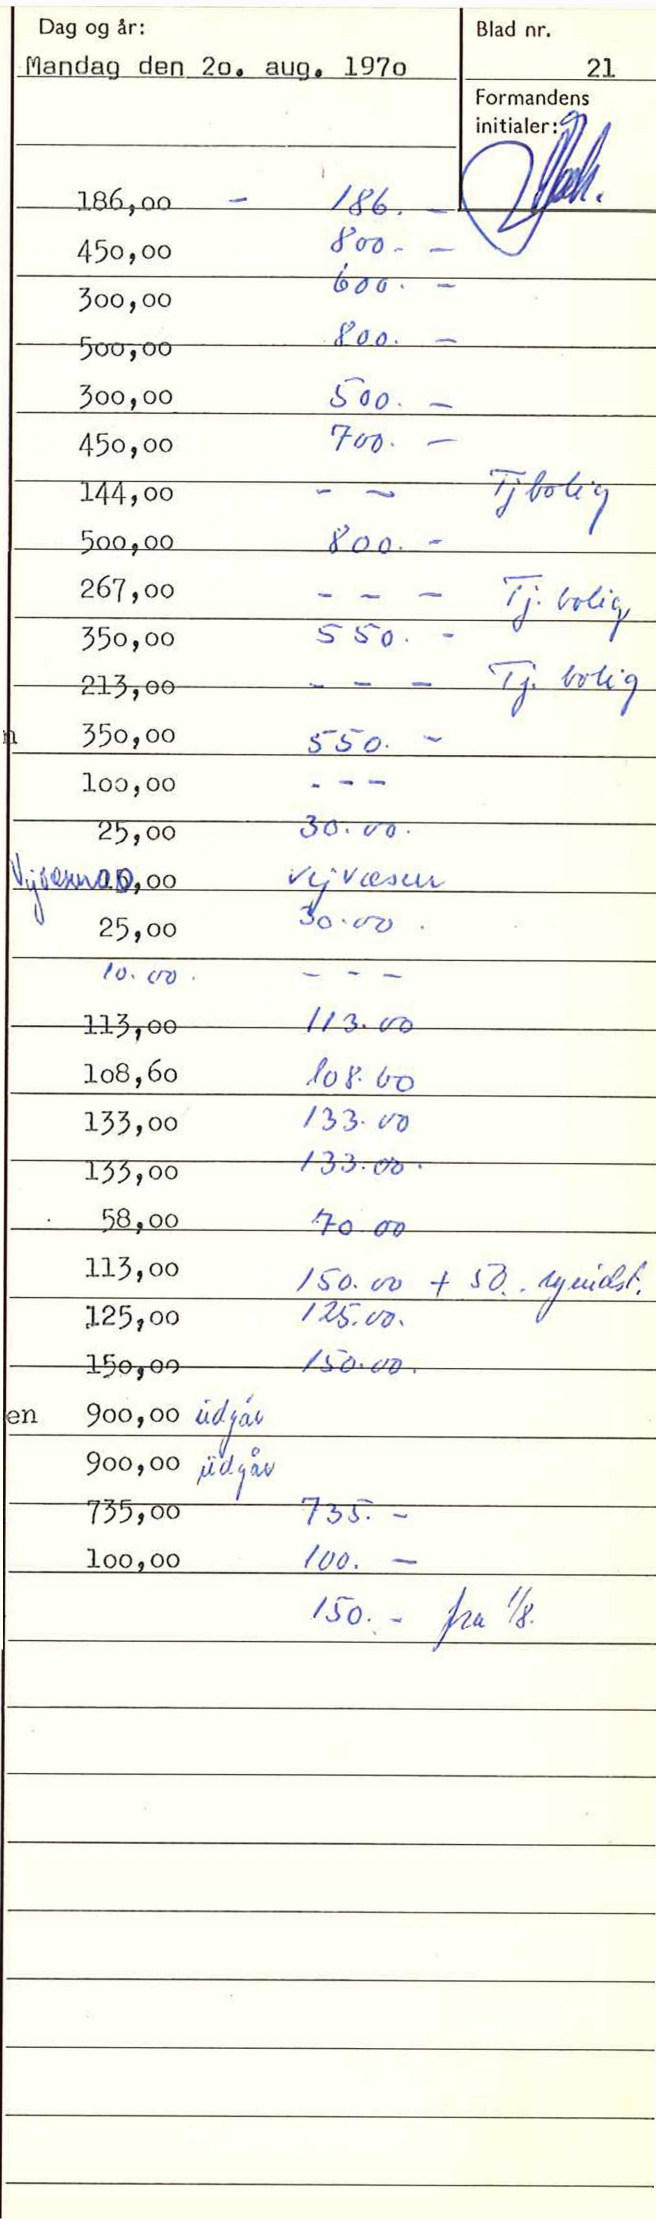 Dag og år: Blad nr.
Mandag den 2o. aug. 197o 21
Formandens
initialer:
186,oo - 186. -
45o,oo 800. -
3oo,oo 600. -
5oo,oo 800. -
3oo,oo 500. -
45o,oo 700. -
144,oo - - Tjbolig
5oo,oo 800. -
267,oo - - - Tj. bolig
35o,oo 550. -
213,oo - - - Tj. bolig
n 35o,oo 550. -
1oo,oo - - -
25,oo 30.00.
,oo Vejvæsen
25,oo 30.00.
10.00. - - -
113,oo 113.00
1o8,6o 108.60
133,oo 133.00
133,oo 133.00.
58,oo 70.00
113,oo 150.00 + 50.
125,oo 125.00.
15o,oo 150.00.
en 9oo,oo udgår
9oo,oo udgår
735,oo 735. -
1oo,oo 100. -
150. - fra 1/8.